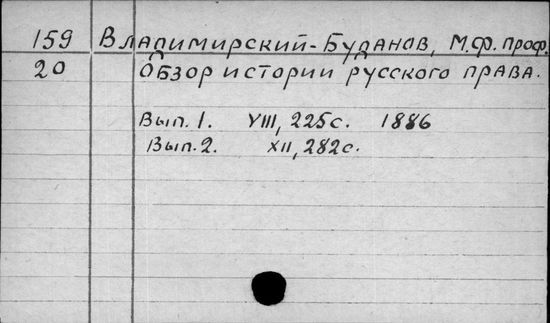 159 Владимирский-Буданов, М.Ф. проф.
20 Обзор истории русского права.
Вып. 1. VIII, 225с. 1886
Вып. 2. XII, 282с.